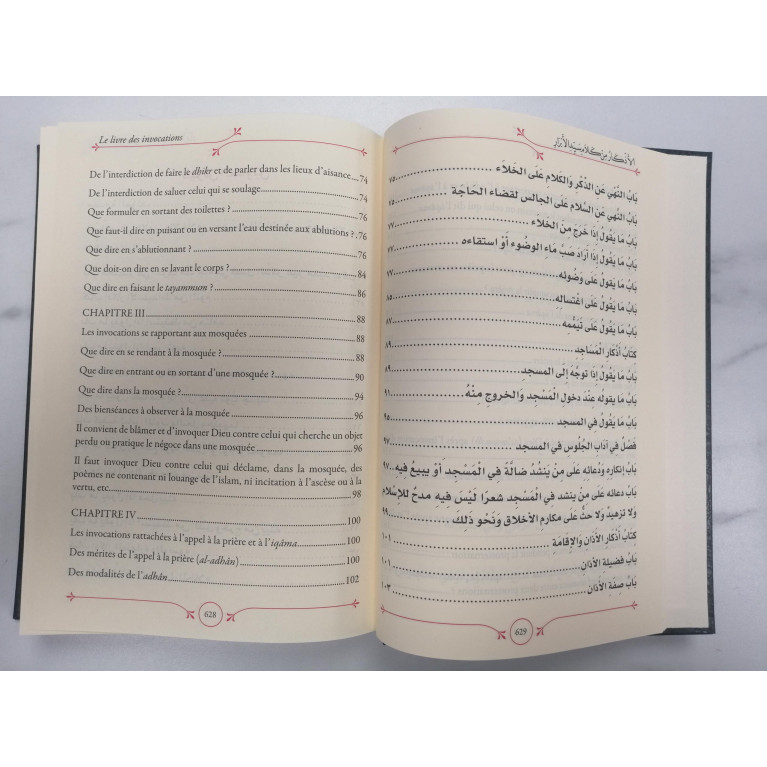 Le livre des invocations
De l'interdiction de faire le dhikr et de parler dans les lieux d'aisance....74
De l'interdiction de saluer celui qui se soulage....74
Que formuler en sortant des toilettes ?....76
Que faut-il dire en puisant ou en versant l'eau destinée aux ablutions ?..76
Que dire en s'ablutionnant ?....76
Que doit-on dire en se lavant le corps ?....84
Que dire en faisant le tayammum ?....86
CHAPITRE III....88
Les invocations se rapportant aux mosquées....88
Que dire en se rendant à la mosquée ?....88
Que dire en entrant ou en sortant d'une mosquée ?....90
Que dire dans la mosquée ?....94
Des bienséances à observer à la mosquée....96
Il convient de blâmer et d'invoquer Dieu contre celui qui cherche un objet
perdu ou pratique le négoce dans une mosquée....96
Il faut invoquer Dieu contre celui qui déclame, dans la mosquée, des
poèmes ne contenant ni louange de l'islam, ni incitation à l'ascèse ou à la
vertu, etc....98
CHAPITRE IV....100
Les invocations rattachées à l'appel à la prière et à l'iqâma....100
Des mérites de l'appel à la prière (al-adhân)....100
Des modalités de l'adhân....102
628
الأذكار من كلام سيد الأبرار
بَابُ النَّهْيِ عَنِ الذِّكْرِ وَالكَلَامِ عَلَى الخَلَاءِ....٧٥
بَابُ النَّهْيِ عَنِ السَّلَامِ عَلَى الجَالِسِ لِقَضَاءِ الحَاجَةِ....٧٥
بَابُ مَا يَقُولُ إِذَا خَرَجَ مِنَ الخَلَاءِ....٧٧
بَابُ مَا يَقُولُ إِذَا أَرَادَ صَبَّ مَاءِ الوَضُوءِ أَوْ استقاءه....٧٧
بَابُ مَا يَقُولُ عَلَى وَضُوئِه....٧٧
بَابُ مَا يَقُولُ عَلَى اغْتسَالِه....٨٥
بَابُ مَا يَقُولُ عَلَى تَيَمُّمِه....٨٧
كتَابُ أَذْكَارِ المَسَاجِدِ....٨٩
بَابُ مَا يَقُولُ إِذَا تَوَجَّهَ إِلَى المَسجِدِ....٨٩
بَابُ مَا يَقُوله عِنْدَ دخولِ المَسْجِدِ وَالخروجِ مِنْهُ....٩١
بَابُ مَا يَقُولُ في المسجد....٩٥
فَصْلٌ في آدَابِ الجُلُوسِ في المسجدِ....٩٧
بَابُ إنكارِه ودُعَائِهِ عَلَى مَنْ يَنْشُدُ ضالَّةً فِي المَسْجِدِ أوْ يبيعُ فِيهِ..٩٧
بَابُ دعائه عَلَى من ينشد في المَسْجِدِ شعرًا لَيْسَ فِيهِ مدحٌ للإسْلامِ
ولا تزهيدٌ وَلا حثٌّ على مكارمِ الأخلاقِ وَنَحْوِ ذَلِكَ....٩٩
كتَابُ أَذْكَارِ الأَذَانِ وَالإقَامَةِ....١٠١
بَابُ فَضيلةِ الأَذَانِ....١٠١
بَابُ صفَةِ الأَذَانِ....١٠٣
629